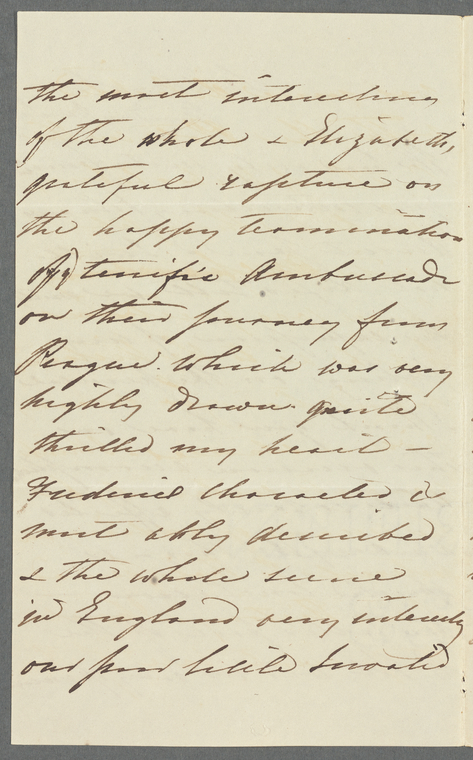 the most interesting
of the whole & Elizabeth,
grateful rapture on
the happy termination
of terrific Ambuscade
on their journey from
Prague. which was very
highly drawn quite
thrilled my heart –
Frederics Character is
most ably described
& the whole scene
in England very interestg
our poor little Invalid